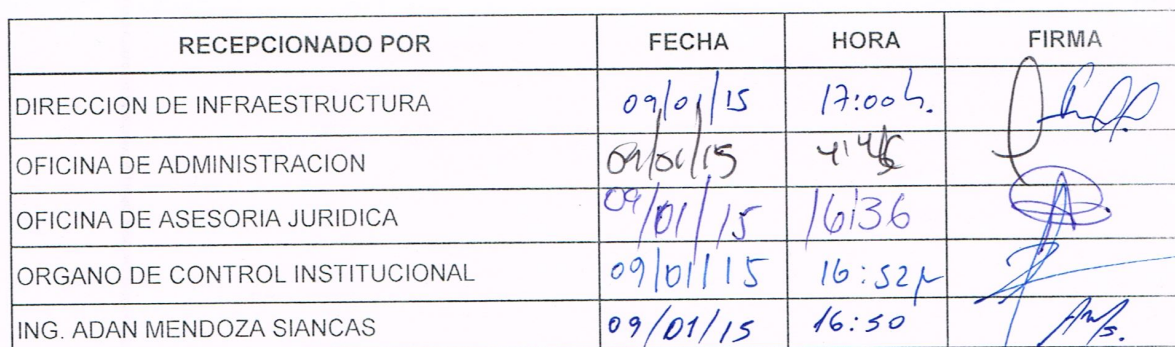 RECEPCIONADO POR FECHA HORA FIRMA
DIRECCION DE INFRAESTRUCTURA 09/01/15 17:00h.
OFICINA DE ADMINISTRACION 09/01/15
OFICINA DE ASESORIA JURIDICA 09/01/15 16:36
ORGANO DE CONTROL INSTITUCIONAL 09/01/15 16:52
ING. ADAN MENDOZA SIANCAS 09/01/15 16:50